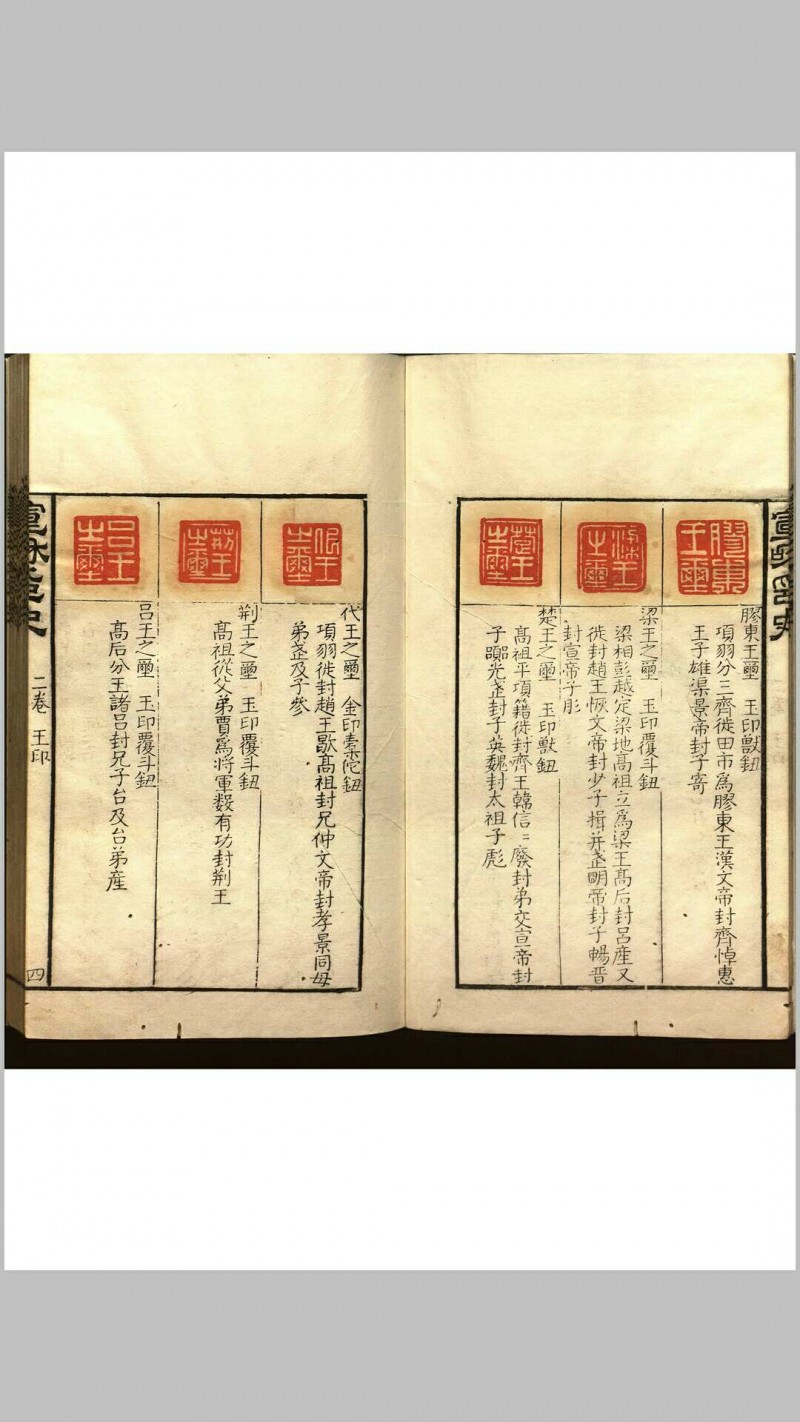 膠東王璽
膠東王璽　玉印獸鈕
項羽分三齊徙田市爲膠東王漢文帝封齊悼惠
王子雄渠景帝封子寄
梁王之璽
梁王之璽　玉印覆斗鈕
梁相彭越定梁地高祖立爲梁王高后封呂産又
徙封趙王恢文帝封少子揖并武明帝封子暢晉
封宣帝子肜
楚王之璽
楚王之璽　玉印獸鈕
高祖平項籍徙封齊王韓信〻廢封弟交宣帝封
子囂光武封子英魏封太祖子彪
代王之璽
代王之璽　金印橐佗鈕
項羽徙封趙王歇高祖封兄仲文帝封孝景同母
弟武及子參
荆王之璽
荆王之璽　玉印覆斗鈕
高祖從父弟賈爲將軍数有功封荆王
呂王之璽
呂王之璽　玉印覆斗鈕
高后分王諸呂封兄子台及台弟産
二卷　王印
四